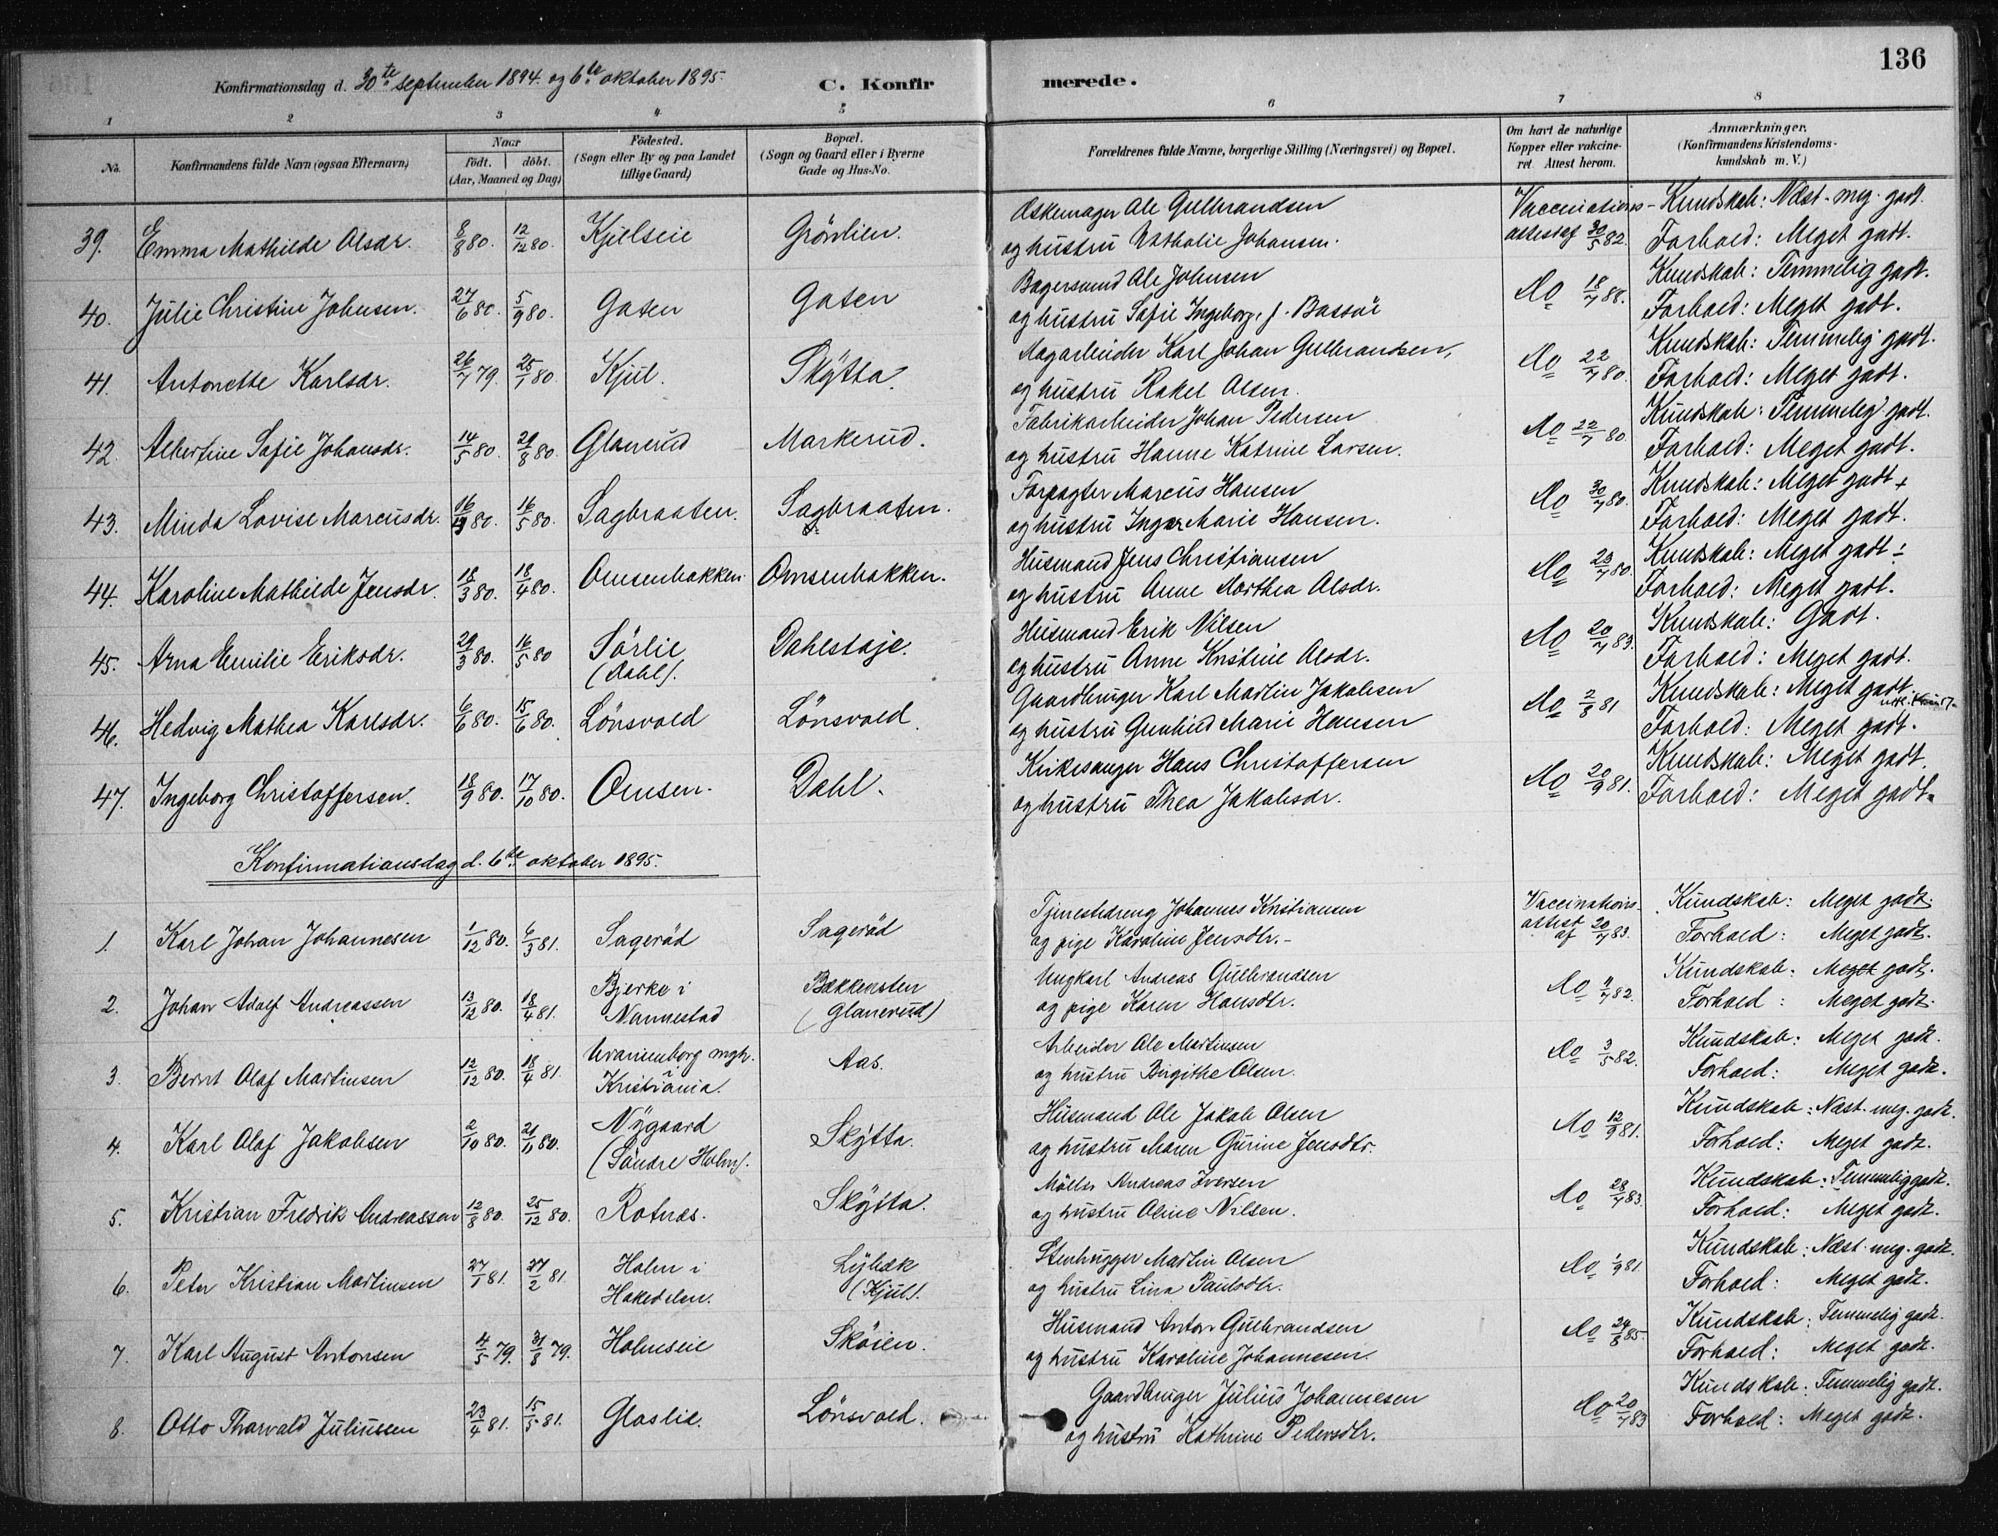 136
Konfirmationsdag d. 30te september 1894. og 6te oktober 1895.
C. Konfirmerede.
1 2 3 4 5 6 7 8
No. Konfirmandens fulde Navn (ogsaa Efternavn) Naar født. døbt. (Aar, Maaned og Dag) Fødested. (Sogn eller By og paa Landet tillige Gaard) Bopæl. (Sogn og Gaard eller i Byerne Gade og Hus-No. Forældrenes fulde Navne, borgerlige Stilling (Næringsvei) og Bopæl. Om havt de naturlige Kopper eller vakcineret. Attest herom. Anmærkninger. (Konfirmandens Kristendomskundskab m. V.)
39. Emma Mathilde Olsdr. 8/8 80. 12/12 80. Kjulseie Grönlien. Æskemager Ole Gulbrandsen Vaccinations- Kundskab: Næst. meg. godt.
og hustru Nathalie Johansen. attest af 30/5 82. Forhold: Meget godt.
40. Julie Christine Johnsen. 27/6 80. 5/9 80. Gasen Gasen Bagersvend Ole Johnsen Do 18/7 88. Kundskab: Temmelig godt.
og hustru Sofie Ingeborg, f. Bassöe Forhold: Meget godt.
41. Antonette Karlsdr. 26/7 79. 25/1 80. Kjul. Skÿtta. Dagarbeider Karl Johan Gulbrandsen, Do 22/7 80. Kundskab: Temmelig godt.
og hustru Rakel Olsen. Forhold: Meget godt.
42. Albertine Sofie Johansdr. 14/5 80. 29/8 80. Glanerud Markerud. Fabrikarbeider Johan Pedersen Do 22/7 80. Kundskab: Temmelig godt.
og hustru Hanne Katrine Larsen. Forhold: Meget godt.
43. Minda Lovise Marcusdr. 80. 16/5 80. Sagbraaten. Sagbraaten. Forpagter Marcus Hansen Do 30/7 80. Kundskab: Meget godt +
og hustru Inger Marie Hansen. Forhold: Meget godt.
44. Karoline Mathilde Jensdr. 18/3 80. 18/4 80. Omsenbakken Omsenbakken. Husmand Jens Christiansen Do 23/7 80. Kundskab: Meget godt ÷
og hustru Anne Marthea Olsdr. Forhold: Meget godt.
45. Arna Emilie Eriksdr. 29/3 80. 16/5 80 Sörlie (Dahl). Dahlstøje. Husmand Erik Nilsen Do 20/7 83. Kundskab: Godt.
og hustru Anne Kristine Olsdr. Forhold: Meget godt.
46. Hedvig Mathea Karlsdr. 6/6 80. 15/6 80. Lönsvold Lönsvold. Gaardbruger Karl Martin Jakobsen Do 2/8 81 Kundskab: Meget godt.
og hustru Gunhild Marie Hansen Forhold: Meget godt.
47. Ingeborg Christoffersen. 18/9 80. 17/10 80. Omsen. Dahl. Kirkesanger Hans Christoffersen Do 20/9 81. Kundskab: Meget godt.
og hustru Thea Jakobsdr. Forhold: Meget godt.
Konfirmationsdag d. 6te oktober 1895.
1. Karl Johan Johannesen 1/12 80. 6/3 81. Sageröd Sageröd Tjenestedreng Johannes Kristiansen Vaccinations- Kundskab: Meget godt.
og pige Karoline Jensdtr. attest af 20/7 83. Forhold: Meget godt.
2. Johan Adolf Andreassen 13/12 80. 18/4 81. Bjerke i Nannestad Bækkensten (Glanerud) Ungkarl Andreas Gulbrandsen Do 11/7 82. Kundskab: Meget godt.
og pige Karen Hansdtr. Forhold: Meget godt.
3. Bernt Olaf Martinsen 12/12 80. 18/4 81. Uranienborg mgh. i Kristiania. Aas. Arbeider Ole Martinsen Do 3/5 82. Kundskab: Meget godt.
og hustru Birgithe Olsen. Forhold: Meget godt.
4. Karl Olaf Jakobsen 2/10 80. 21/11 80. Nÿgaard (Söndre Holm). Skÿtta. Husmand Ole Jakob Olsen Do 12/9 81. Kundskab: Næst. meg. godt.
og hustru Maren Gurine Jensdtr. Forhold: Meget godt.
5. Kristian Fredrik Andreassen 12/8 80. 25/12 80. Rotnæs. Skÿtta. Möller Andreas Iversen Do 28/7 83. Kundskab: Temmelig godt.
og hustru Oline Nilsen. Forhold: Meget godt.
6. Peter Kristian Martinsen 27/1 81. 27/2 81 Holm i Hakedalen. Lÿbæk (Kjul). Stenhugger Martin Olsen Do 1/9 81. Kundskab: Næst. meg. godt.
og hustru Lina Paulsdtr. Forhold: Meget godt.
7. Karl August Antonsen 4/5 79. 31/8 79. Holmseie Sköien. Husmand Anton Gulbrandsen Do 24/8 85. Kundskab: Temmelig godt.
og hustru Karoline Johannesen. Forhold: Meget godt.
8. Otto Tharvald Juliussen 23/4 81. 15/5 81. Glaslie. Lönsvold. Gaardbruger Julius Johannesen Do 20/7 83 Kundskab: Temmelig godt.
og hustru Kathrine Pedersdtr. Forhold: Meget godt.